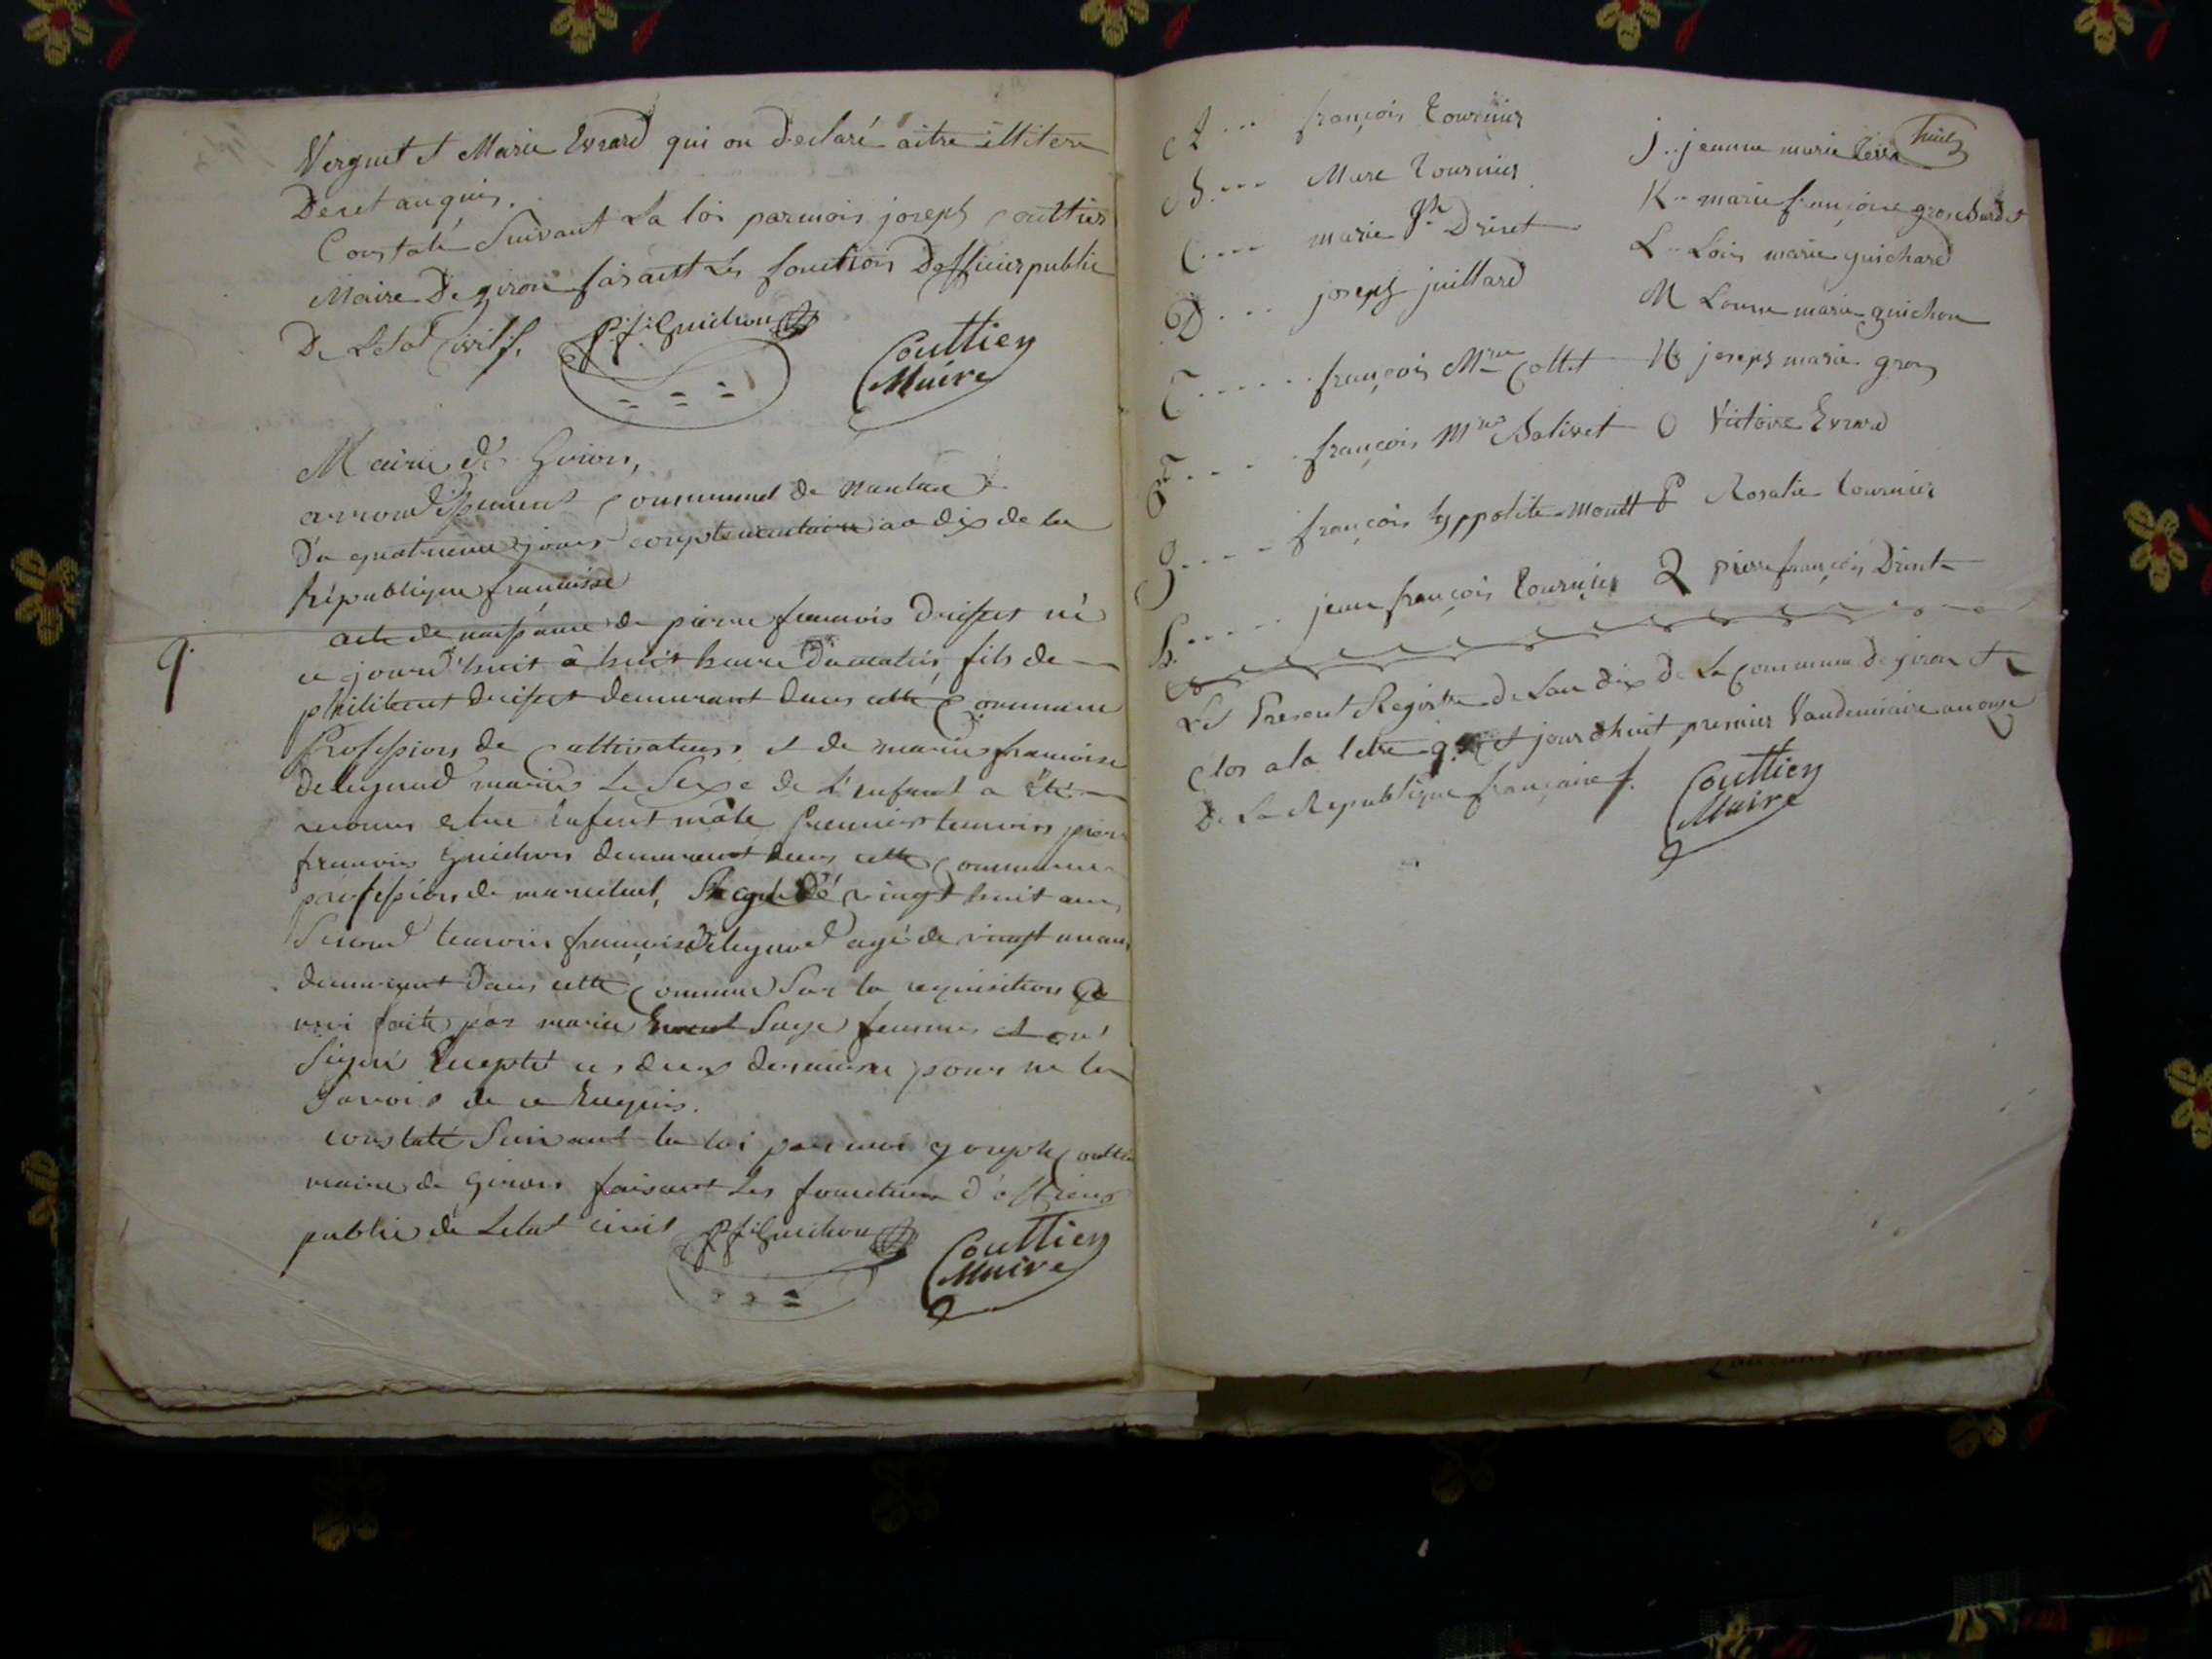 Verguet et Marie Evrard qui on declaré aitre illitere
De cet anquis.
Constaté Suivant La loi par mois joseph Couttier
Maire De giron faisant Les fonction Dofficier public
De Letat Civil
P. f. Guichon
Couttier
Maire
Mairie de Giron,
arrondissement communal de nantua
Du quatrieme jour complementaire an dix de la
République francaisse
q.
acte de naissance de pierre francois Drisset né
ce jourd'huit à huit heure du matin, fils de
philibert Drisset demeurant dans cette Commune
Profession de Cultivateur, et de marie francoise
Delegnard mariés Le Sexe de L'enfant a été
reconnu estre Enfent mâle Premier temoin pierre
francois Guichon demeurant dans cette Commune
profession de marechal, agé de vingt huit ans
Second temoin francois Delegnard agé de vingt un ans
demeurant dans cette Commune Sur la requisition a
moi faite par marie Evrard Sage femme et on
Signé Excepté ces deux derniere pour ne le
Savoir de ce Enquis.
constaté Suivant la loi par moi joseph Couttier
maire de Giron faisant Les fonction d'officier
public de Letat civil
P f. Guichon
Couttier
Maire
A ... françois Tournier
B. ... Marc Tournier
C .... marie Driset
D .... joseph juillard
E ...... françois Mrie Collet
F .... françois Mrie Balivet
g .... françois hyppolite Monet
h. ..... jean françois Tournier
J .. jeanne marie
K .. marie françoise grosburdet
L .. Lois marie guichard
M Louise marie guichon
N joseph marie gros
O Victoire Evrard
P Rosalie Tournier
Q pierre françois Driset
Le Present Registre de Lan dix De La Commune de giron Et
Clos a la letre q. Cet jourdhuit premier Vandemiaire an onze
De La Republique françaice
Couttier
Maire